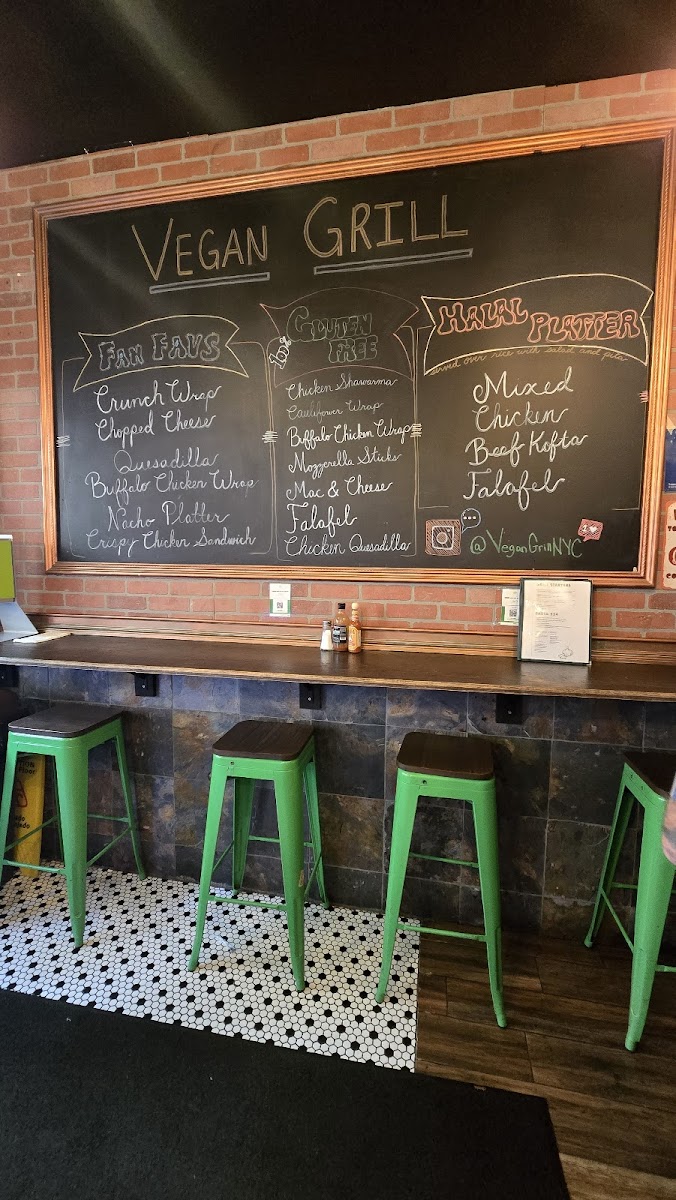 VEGAN GRILL
FAN FAVS
Crunch Wrap
Chopped Cheese
Quesadilla
Buffalo Chicken Wrap
Nacho Platter
Crispy Chicken Sandwich
100%
GLUTEN
FREE
Chicken Shawarma
Cauliflower Wrap
Buffalo Chicken Wrap
Mozzerella Sticks
Mac & Cheese
Falafel
Chicken Quesadilla
HALAL PLATTER
served over rice with salad and pita
Mixed
Chicken
Beef Kofta
Falafel
@VeganGrillNYC